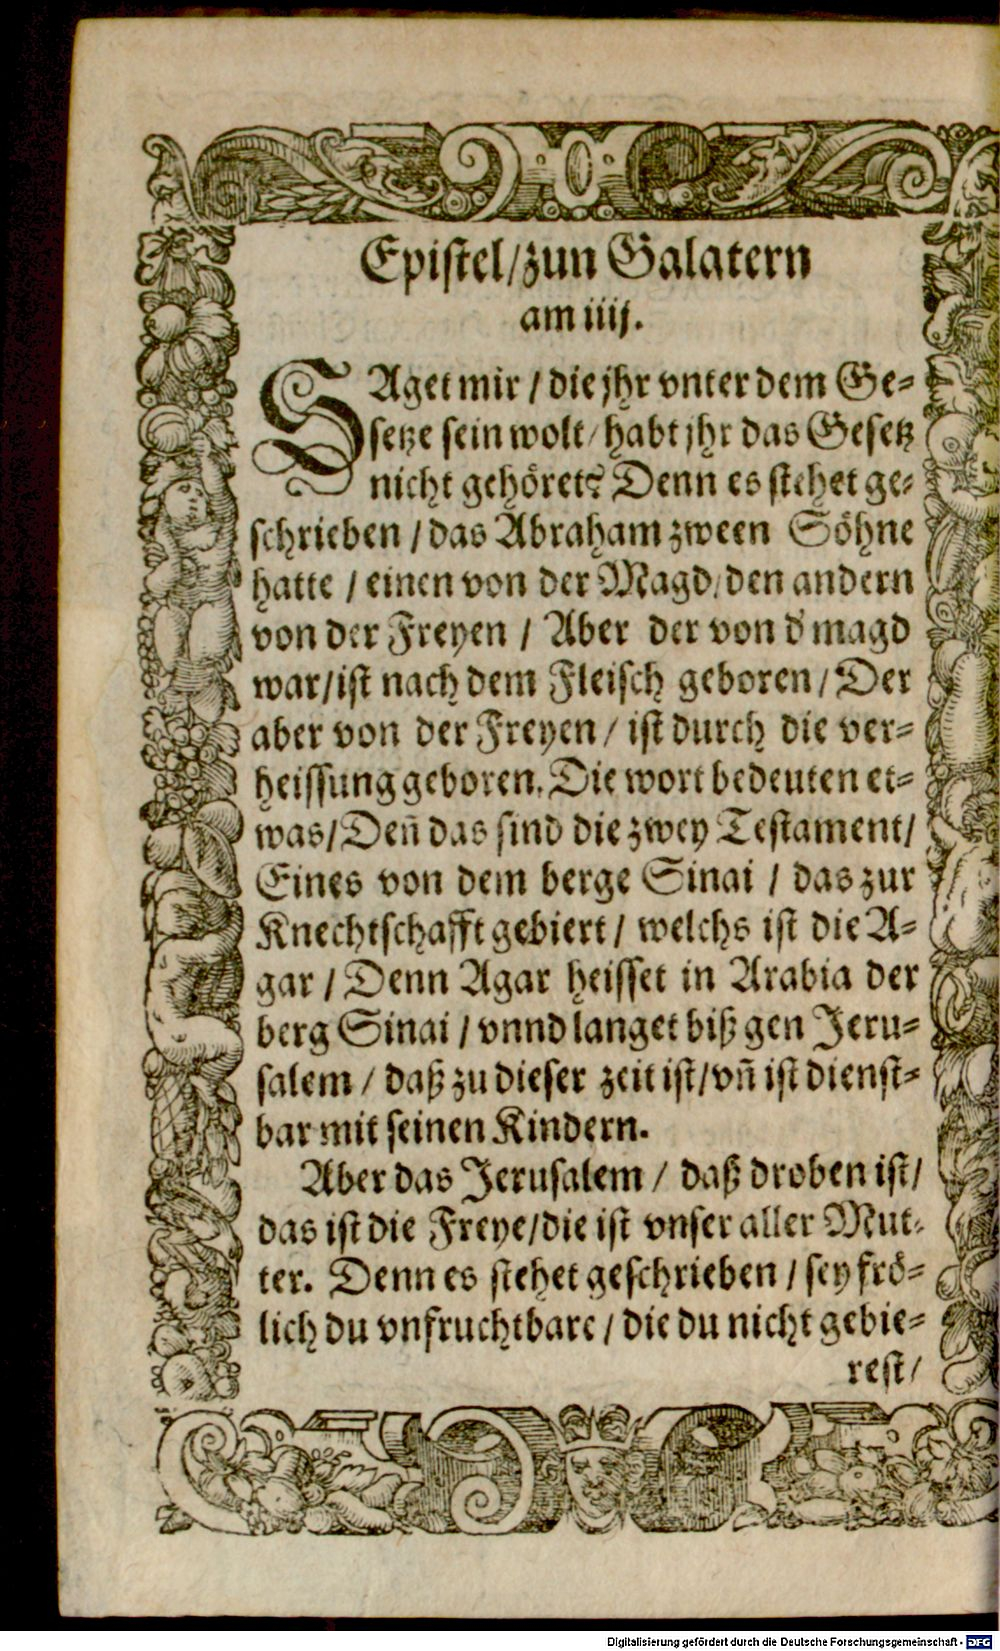 Epistel/zun Galatern
am iiij.
SAget mir / die jhr vnter dem Ge-
setze sein wolt / habt jhr das Gesetz
nicht gehöret? Denn es stehet ge-
schrieben / das Abraham zween Söhne
hatte / einen von der Magd / den andern
von der Freyen / Aber der von d' magd
war/ist nach dem Fleisch geboren / Der
aber von der Freyen / ist durch die ver-
heissung geboren. Die wort bedeuten et-
was/Deñ das sind die zwey Testament/
Eines von dem berge Sinai / das zur
Knechtschafft gebiert / welchs ist die A-
gar / Denn Agar heisset in Arabia der
berg Sinai / vnnd langet biß gen Jeru-
salem / daß zu dieser zeit ist/vñ ist dienst-
bar mit seinen Kindern.
Aber das Jerusalem / daß droben ist/
das ist die Freye/die ist vnser aller Mut-
ter. Denn es stehet geschrieben / sey frö-
lich du vnfruchtbare / die du nicht gebie-
rest/
Digitalisierung gefördert durch die Deutsche Forschungsgemeinschaft - DFG